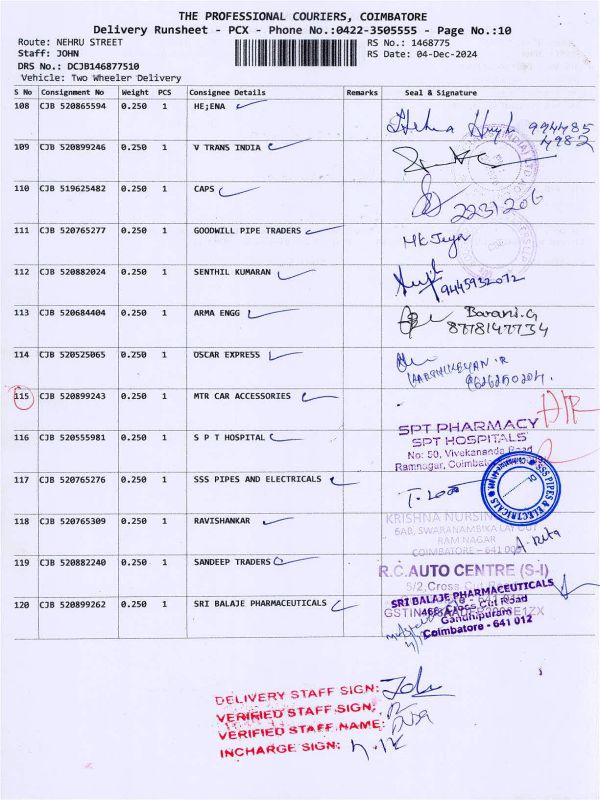 THE PROFESSIONAL COURIERS, COIMBATORE
Delivery Runsheet - PCX - Phone No.:0422-3505555 - Page No.:10
Route: NEHRU STREET RS No.: 1468775
Staff: JOHN RS Date: 04-Dec-2024
DRS No.: DCJB146877510
Vehicle: Two Wheeler Delivery
S No Consignment No Weight PCS Consignee Details Remarks Seal & Signature
108 CJB 520865594 0.250 1 HE;ENA
109 CJB 520899246 0.250 1 V TRANS INDIA
110 CJB 519625482 0.250 1 CAPS 2231206
111 CJB 520765277 0.250 1 GOODWILL PIPE TRADERS
112 CJB 520882024 0.250 1 SENTHIL KUMARAN 9445932072
113 CJB 520684404 0.250 1 ARMA ENGG Barani.G
8778147734
114 CJB 520525065 0.250 1 OSCAR EXPRESS
115 CJB 520899243 0.250 1 MTR CAR ACCESSORIES
116 CJB 520555981 0.250 1 S P T HOSPITAL
SPT PHARMACY
SPT HOSPITALS
No: 50, Vivekananda Road
Ramnagar, Coimbatore
117 CJB 520765276 0.250 1 SSS PIPES AND ELECTRICALS
SSS PIPES & ELECTRICALS
118 CJB 520765309 0.250 1 RAVISHANKAR
KRISHNA NURSING
6AB, SWARANAMBIKA LAYOUT
RAM NAGAR
COIMBATORE - 641 009
119 CJB 520882240 0.250 1 SANDEEP TRADERS
R.C. AUTO CENTRE (S-I)
5/2, Cross Cut Road
120 CJB 520899262 0.250 1 SRI BALAJE PHARMACEUTICALS
SRI BALAJE PHARMACEUTICALS
Cross Cut Road
Gandhipuram
Coimbatore - 641 012
DELIVERY STAFF SIGN:
VERIFIED STAFF SIGN:
VERIFIED STAFF NAME:
INCHARGE SIGN: